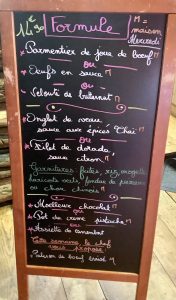 14€30 Formule M = maison
Mercredi
* Parmentier de joue de boeuf M
ou
* Oeufs en sauce M
ou
* Velouté de butternut M
* Onglet de veau,
sauce aux épices Thaï M
ou
* Filet de dorade,
sauce citron. M
Garnitures: frites, riz,
haricots verts, fondue de poireau
ou choux chinois M
* Moelleux chocolat M
ou
* Pot de crème pistache M
ou
* Assiette de
Cette semaine le chef
vous propose:
de boeuf M